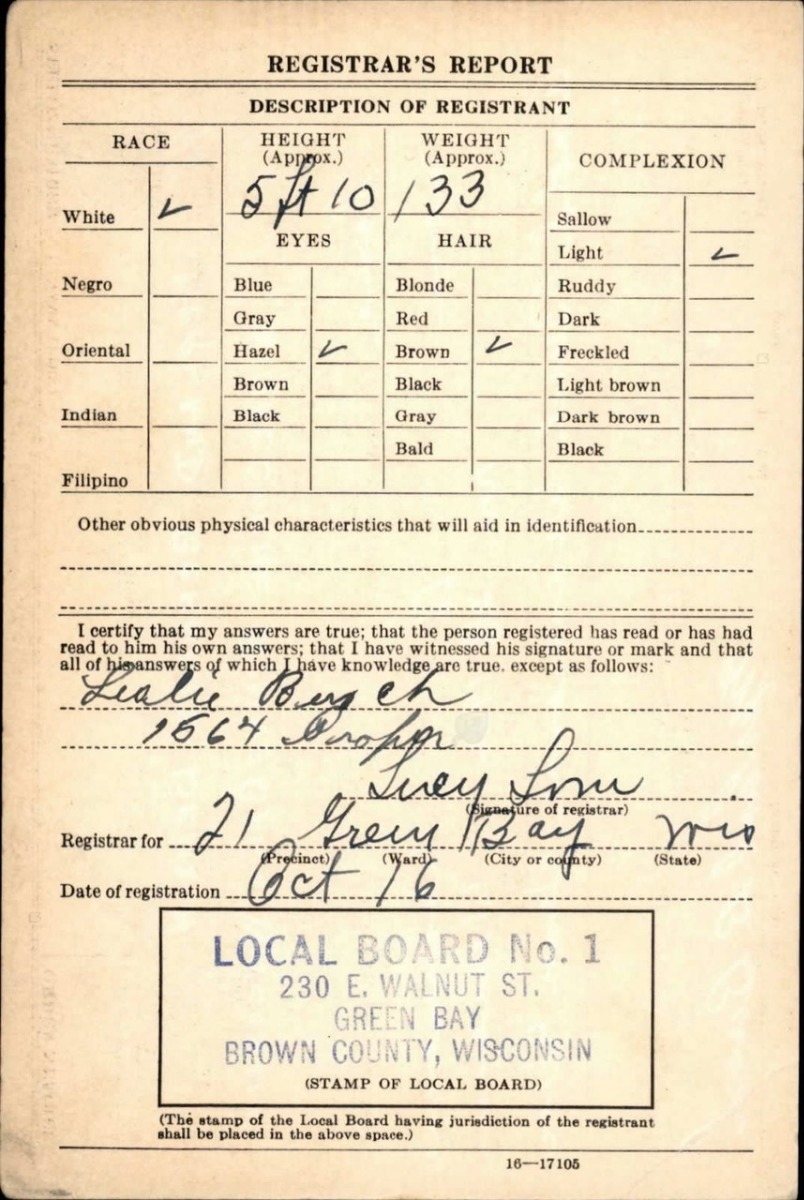 REGISTRAR'S REPORT
DESCRIPTION OF REGISTRANT
RACE
HEIGHT (Approx.)
WEIGHT (Approx.)
COMPLEXION
5 ft 10
133
White ✓
EYES
HAIR
Sallow
Light ✓
Negro
Blue
Blonde
Ruddy
Gray
Red
Dark
Oriental
Hazel ✓
Brown ✓
Freckled
Brown
Black
Light brown
Indian
Black
Gray
Dark brown
Bald
Black
Filipino
Other obvious physical characteristics that will aid in identification
I certify that my answers are true; that the person registered has read or has had
read to him his own answers; that I have witnessed his signature or mark and that
all of his answers of which I have knowledge are true, except as follows:
Leslie
1564
Lucy
(Signature of registrar)
Registrar for 21 Green Bay Wis
(Precinct) (Ward) (City or county) (State)
Date of registration Oct 16
LOCAL BOARD No. 1
230 E. WALNUT ST.
GREEN BAY
BROWN COUNTY, WISCONSIN
(STAMP OF LOCAL BOARD)
(The stamp of the Local Board having jurisdiction of the registrant
shall be placed in the above space.)
16—17105